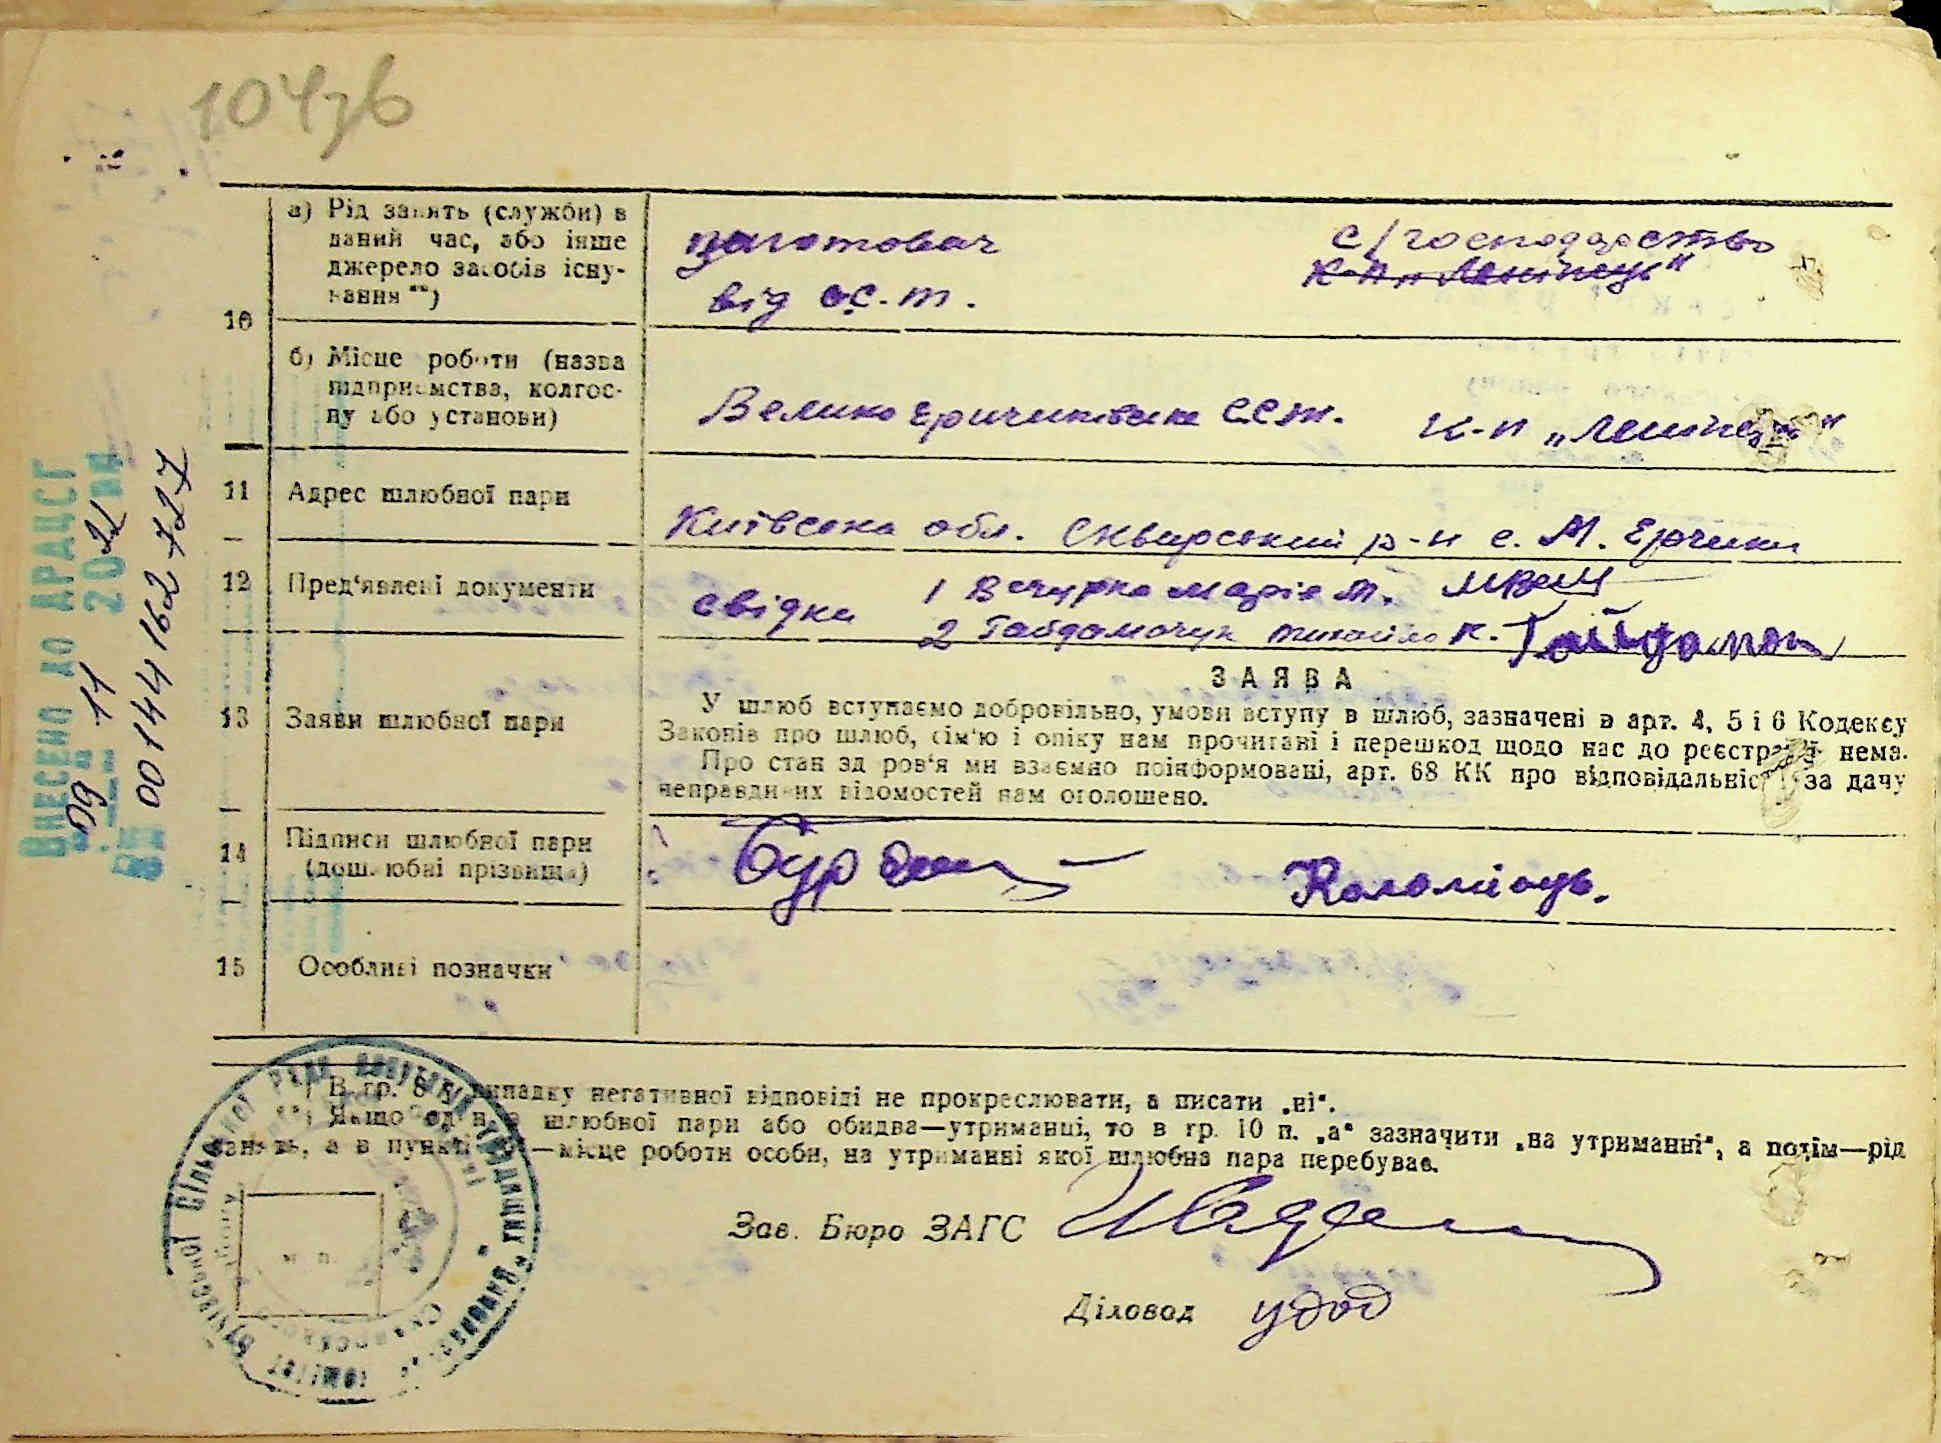 104зв
а) Рід занять (служби) в
даний час, або інше
джерело засобів існу-
вання **)
заготовач
від с.с.т.
с/господарство
к-п „Ленінець"
10
б) Місце роботи (назва
підприємства, колгос-
пу або установи)
Велико Єрчиківське ССТ.
к-п „Ленінець"
11 Адрес шлюбної пари
Київська обл. Сквирський р-н с. М. Єрчики
12 Пред'явлені документи
свідки 1 Вчурка Марія М.
2 Гайдамачук Михайло К. Гайдамач
13 Заяви шлюбної пари
ЗАЯВА
У шлюб вступаємо добровільно, умови вступу в шлюб, зазначені в арт. 4, 5 і 6 Кодексу
Законів про шлюб, сім'ю і опіку нам прочитані і перешкод щодо нас до реєстрації нема.
Про стан здоров'я ми взаємно поінформовані, арт. 68 КК про відповідальність за дачу
неправдивих відомостей нам оголошено.
14 Підписи шлюбної пари
(дошлюбні прізвища)
Коломієць.
15 Особливі позначки
*) В гр. 8 у випадку негативної відповіді не прокреслювати, а писати „ні".
**) Якщо один з шлюбної пари або обидва—утриманці, то в гр. 10 п. „а" зазначити „на утриманні", а потім—рід
занять, а в пункті —місце роботи особи, на утриманні якої шлюбна пара перебуває.
Зав. Бюро ЗАГС
Діловод Удод
Внесено до ДРАЦСГ
"09" 11 2021
№ 00144162727